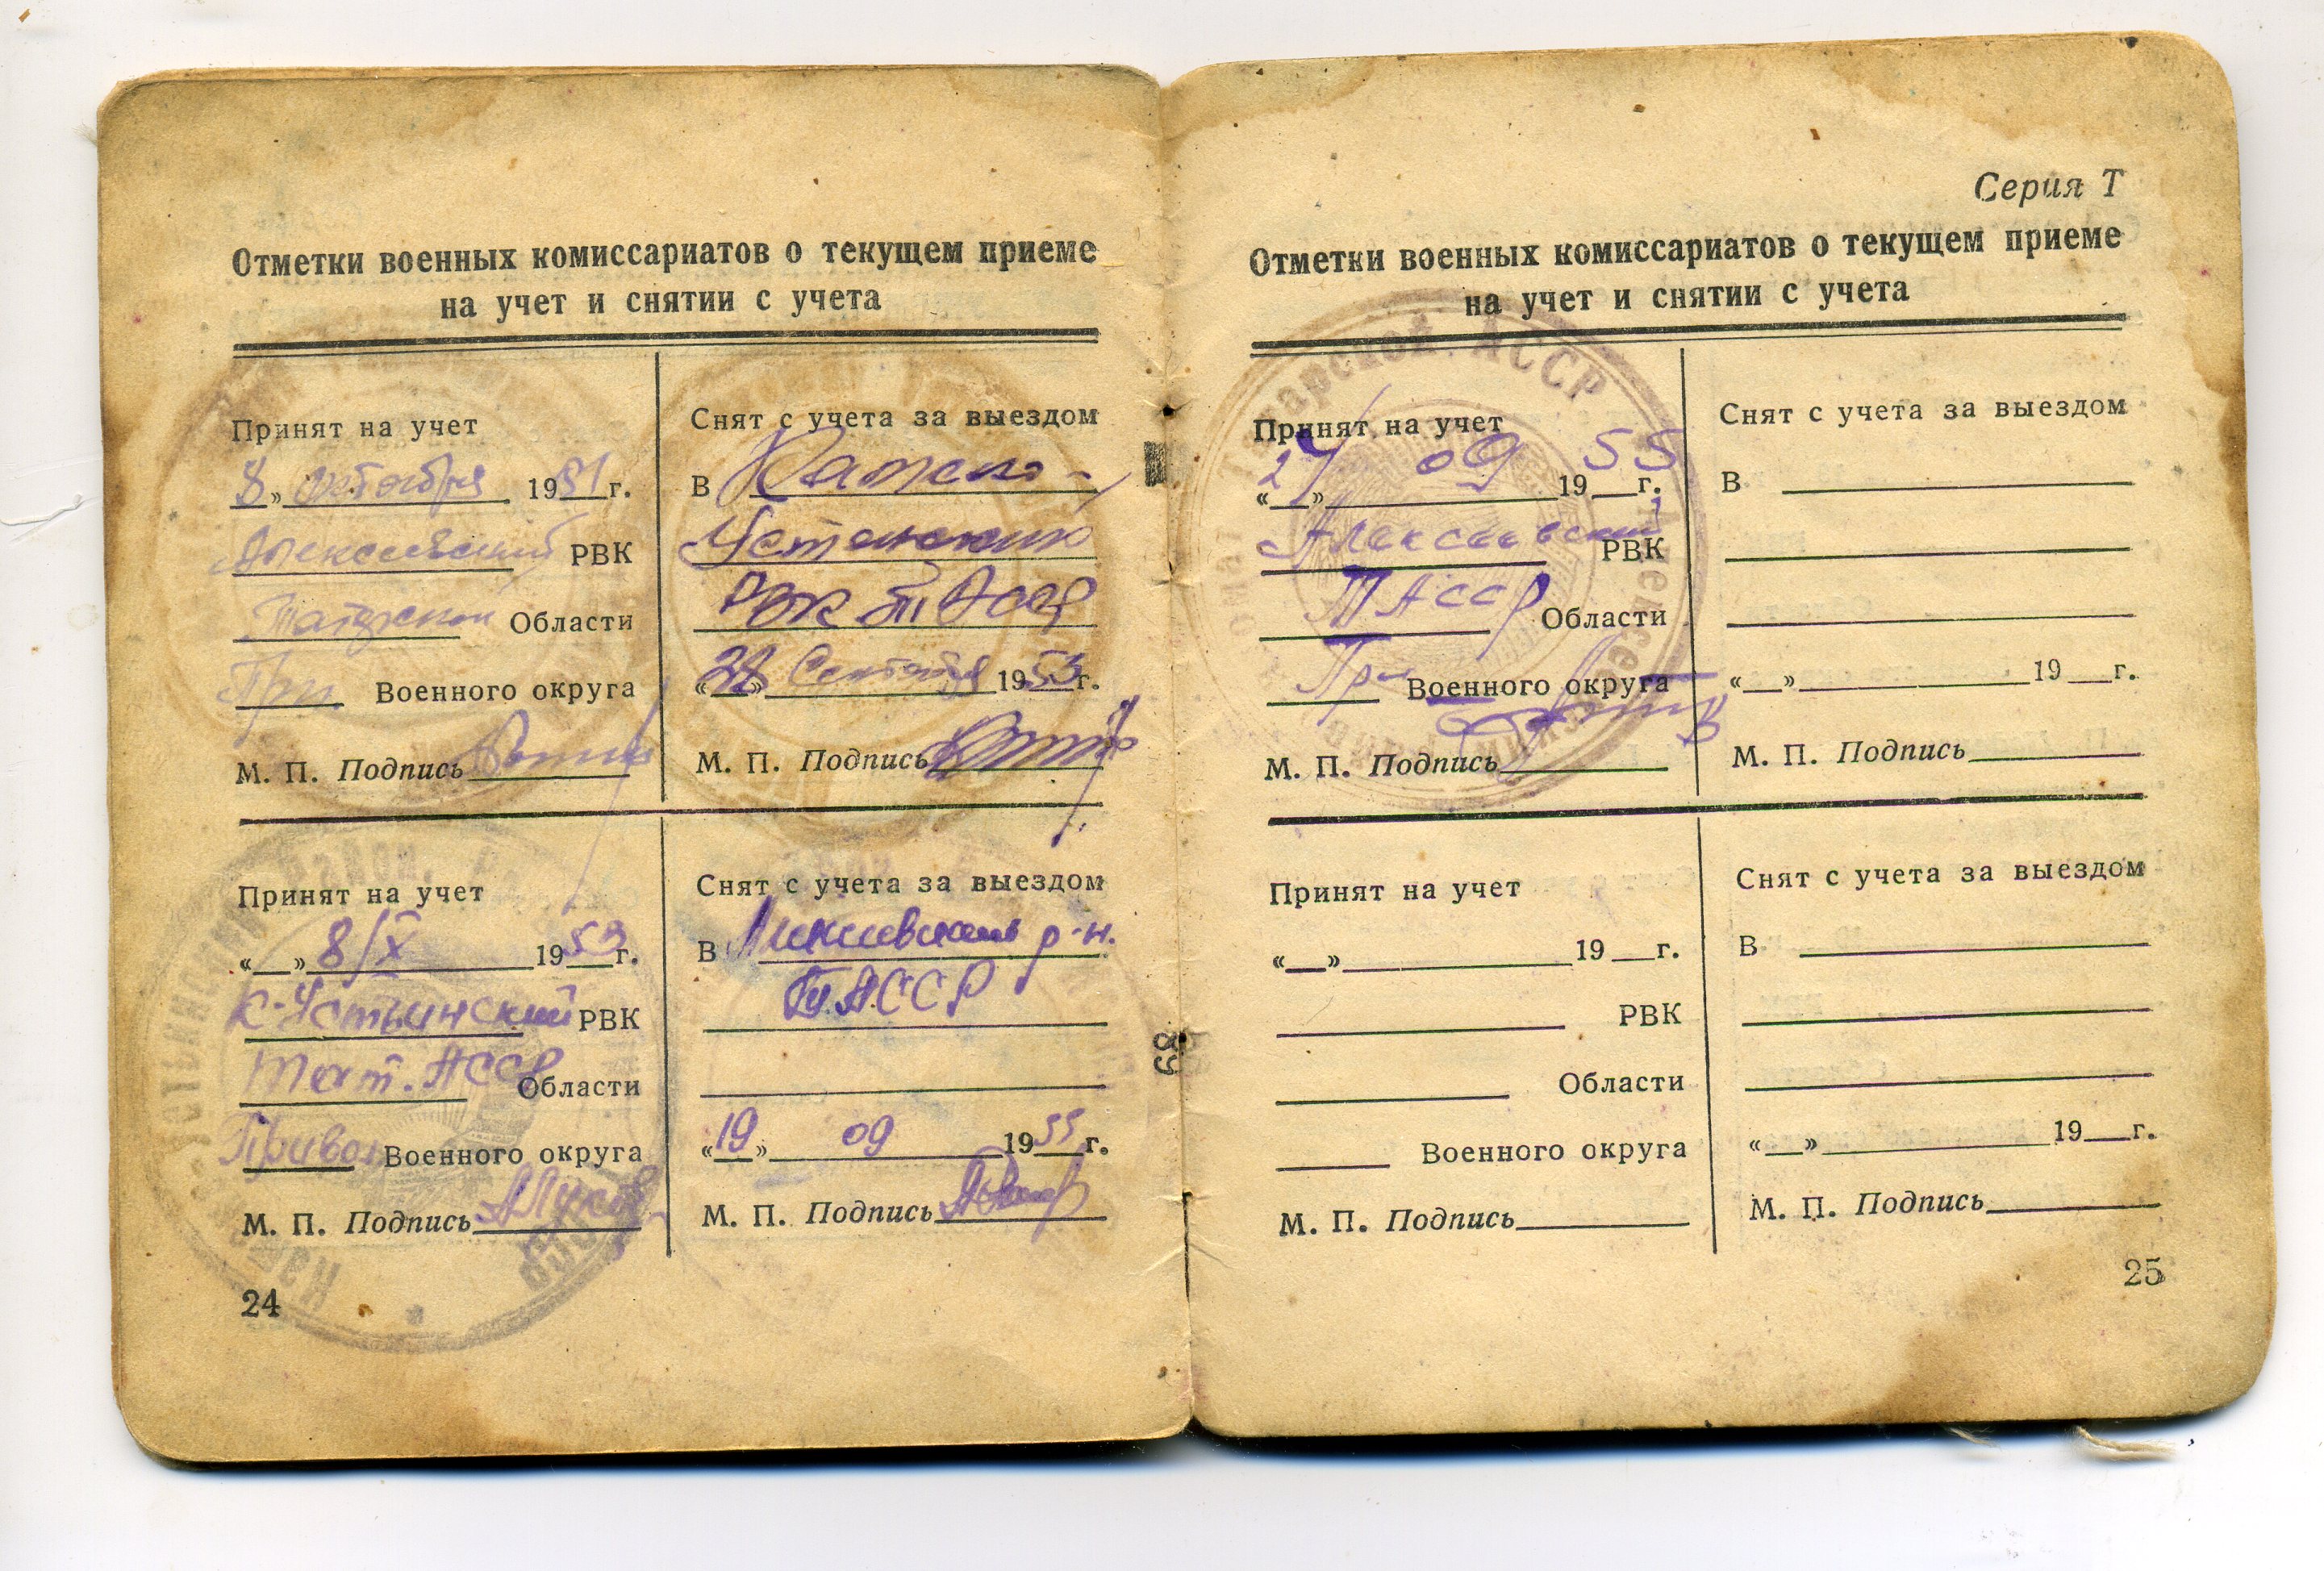 Отметки военных комиссариатов о текущем приеме
на учет и снятии с учета
Принят на учет
8 » октября 1951 г.
Алексеевский РВК
Татарской Области
При Военного округа
М. П. Подпись
Снят с учета за выездом
В Камско-
Устенский
РВК ТАССР
« 28 » Сентября 1953 г.
М. П. Подпись
Принят на учет
« » 8/IX 1953 г.
К-Устьинский РВК
Тат. АССР Области
Привол Военного округа
М. П. Подпись
Снят с учета за выездом
В р-н.
Т.АССР
« 19 » 09 1955 г.
М. П. Подпись
24
89
Серия Т
Отметки военных комиссариатов о текущем приеме
на учет и снятии с учета
Татарской АССР
Принят на учет
« 24 » 09 1955 г.
Алексеевский РВК
ТАССР Области
При Военного округа
М. П. Подпись
Снят с учета за выездом
В
« » 19 г.
М. П. Подпись
Принят на учет
« » 19 г.
РВК
Области
Военного округа
М. П. Подпись
Снят с учета за выездом
В
« » 19 г.
М. П. Подпись
25